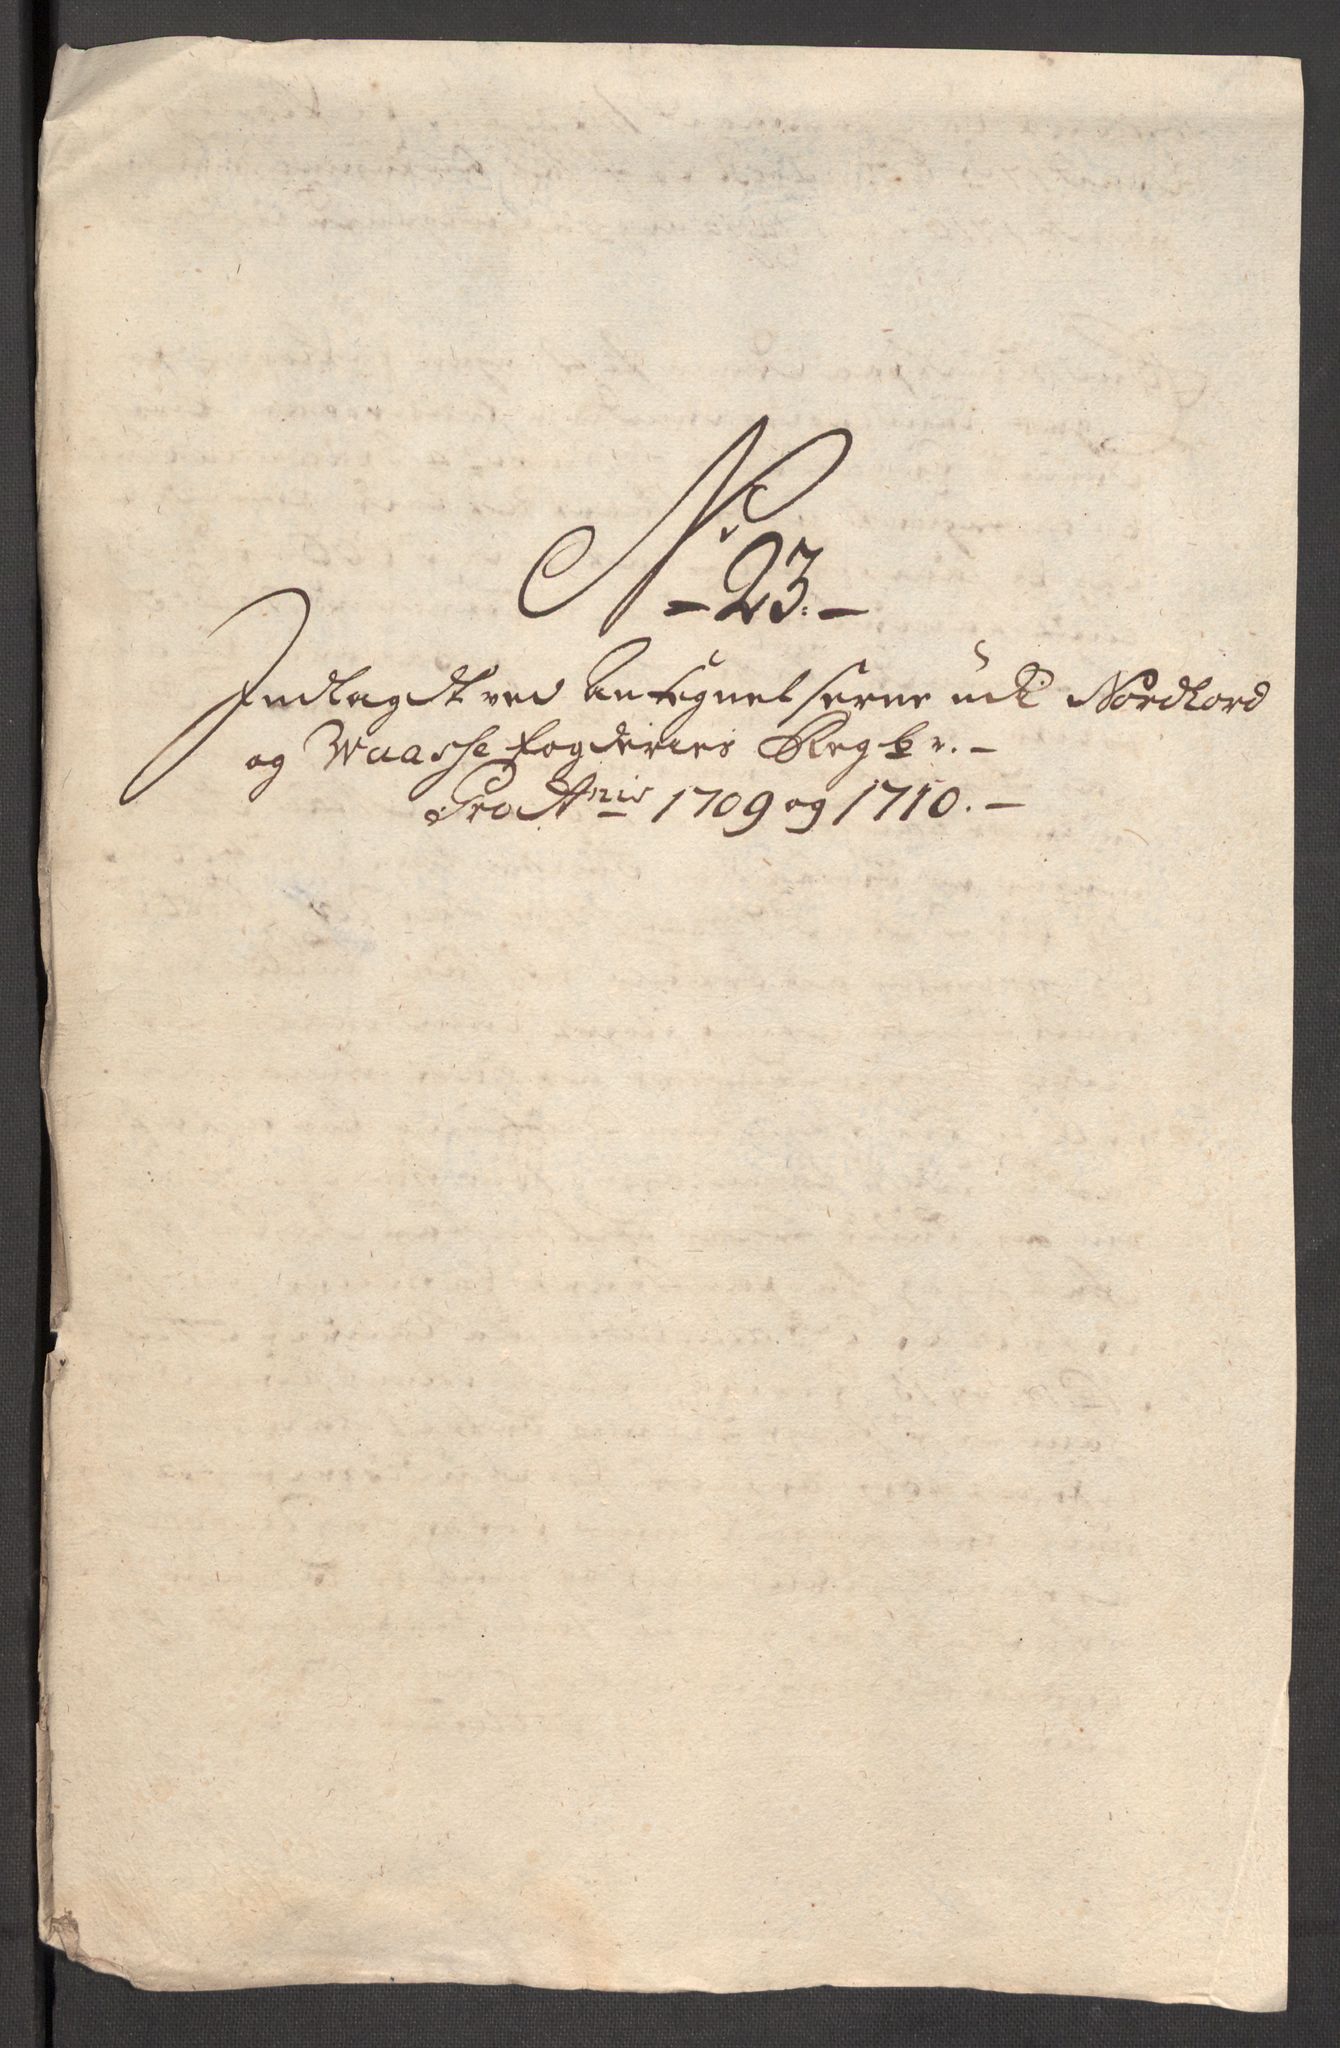 No
- 23. -
Indlagdt ved Antegnelserne udi Nordhord
og Waasse fogderies Regb r. -
Pro Anis 1709 og 1710. -